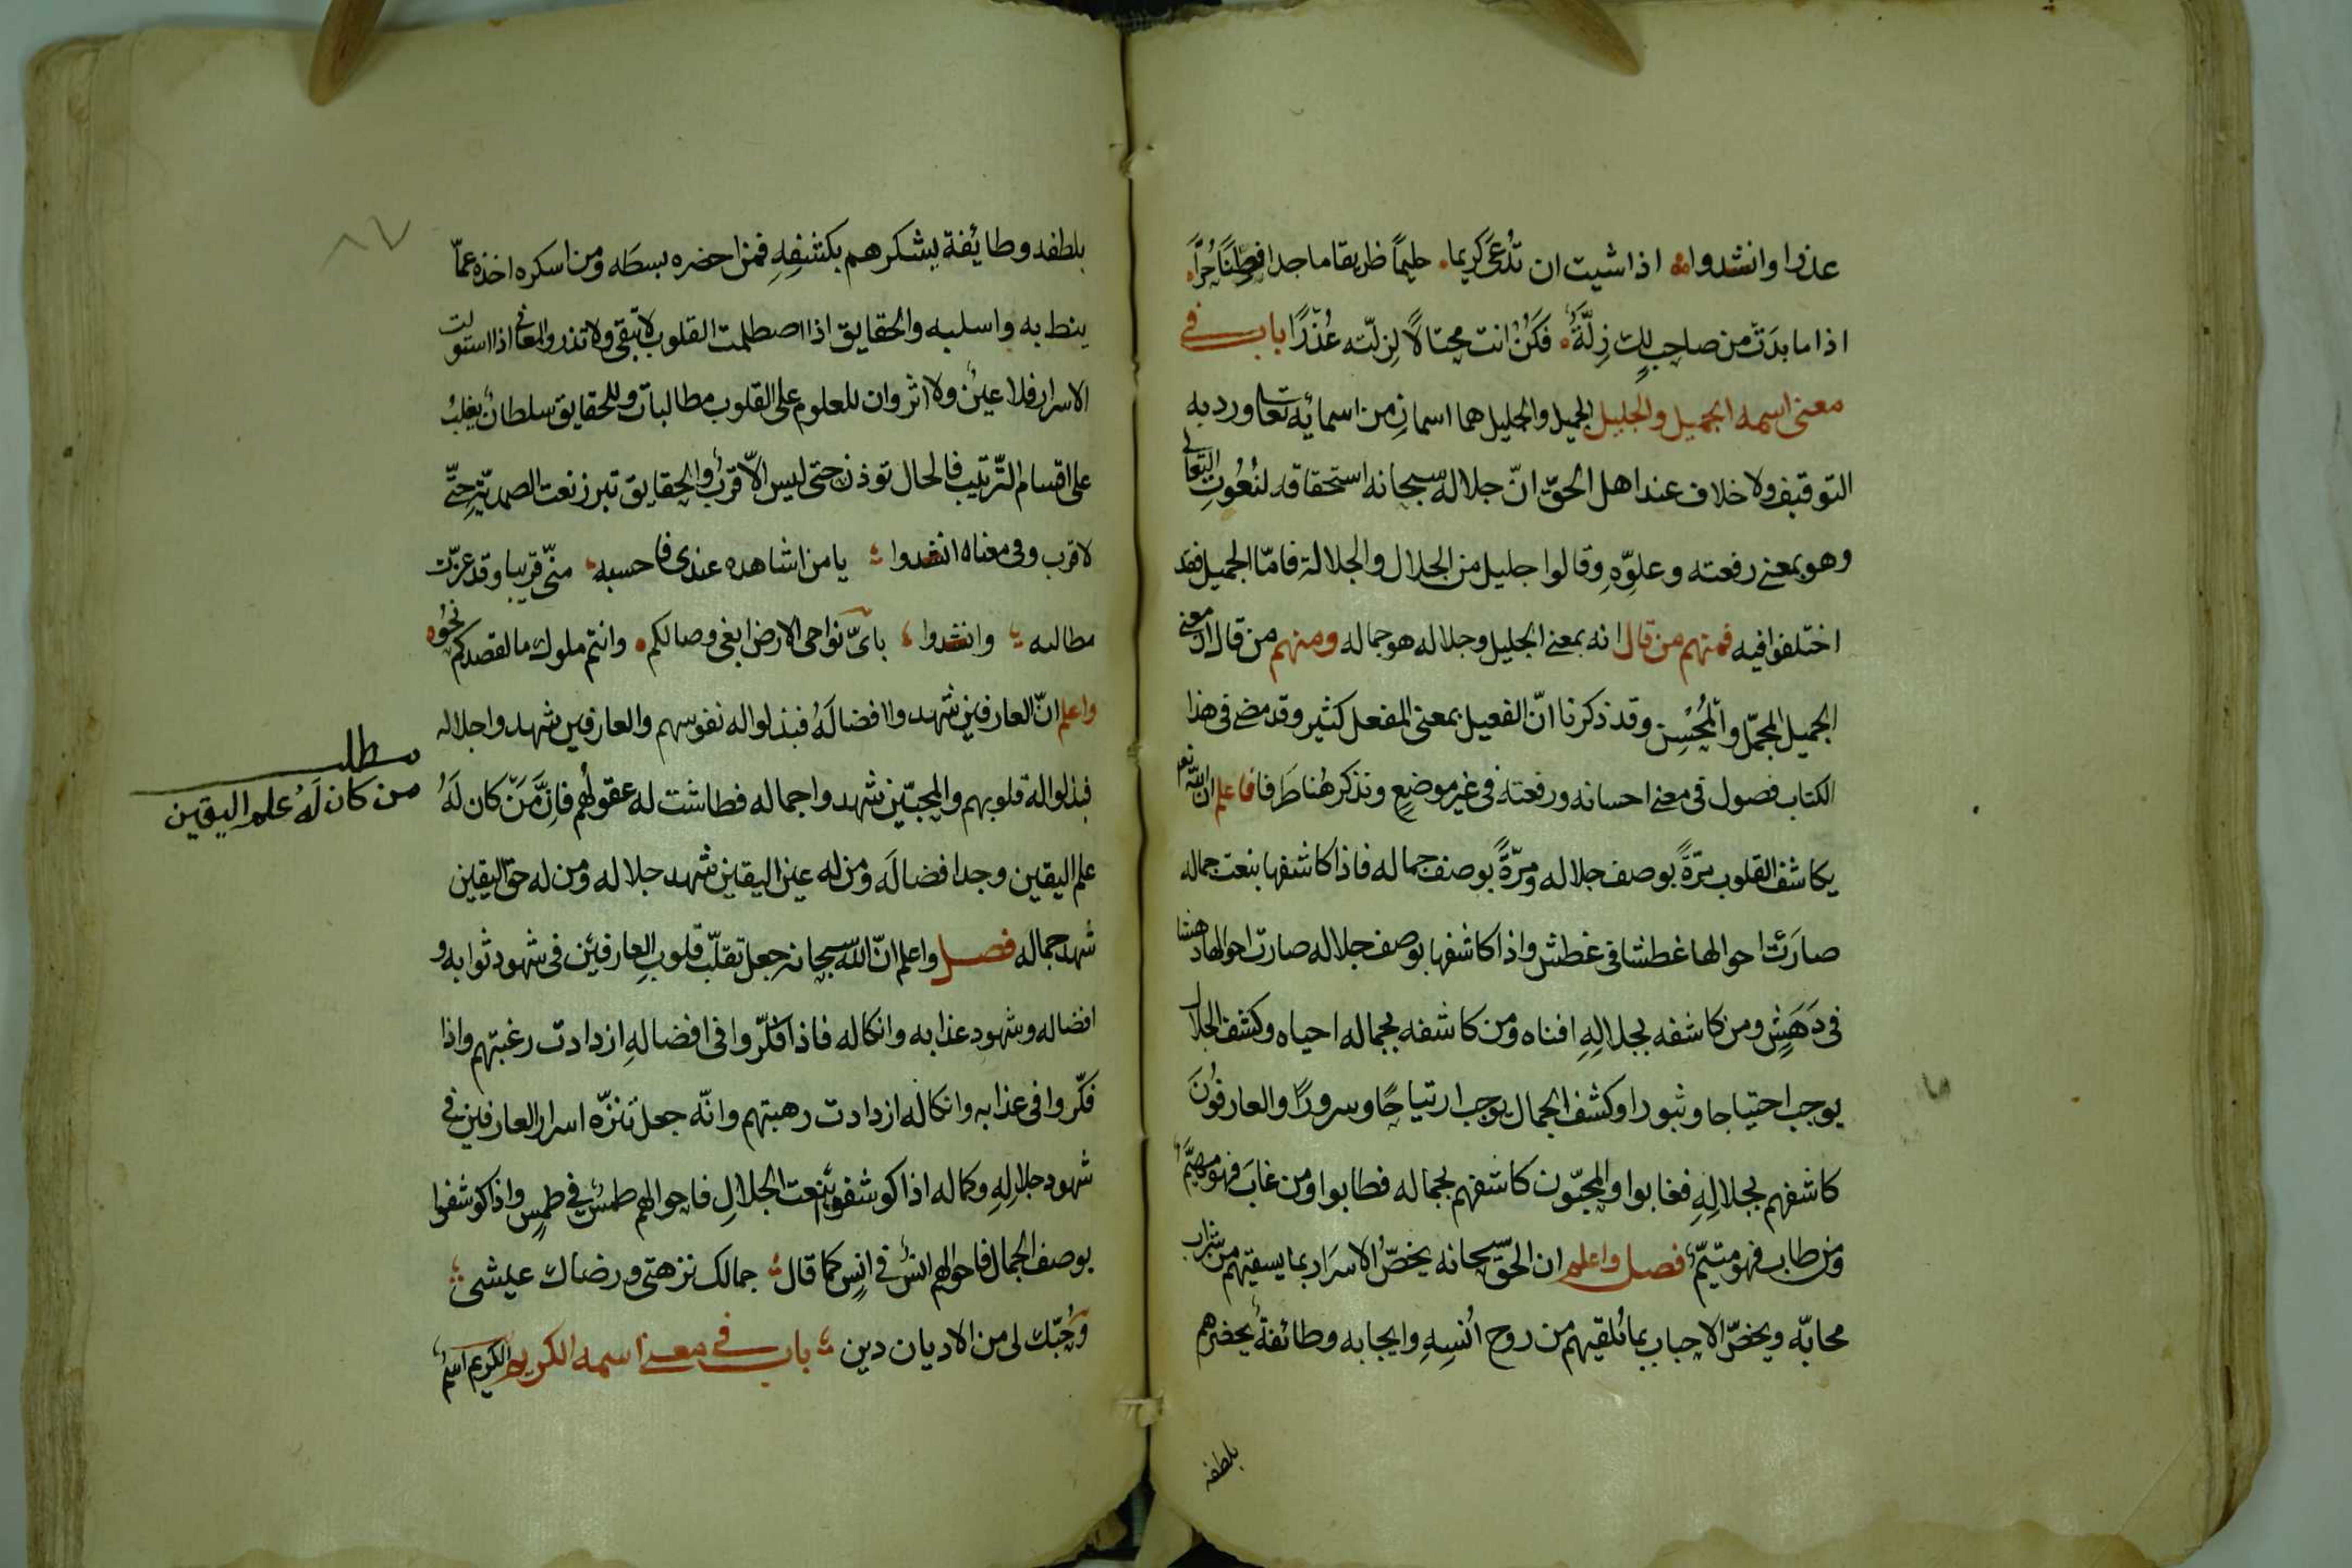 عذرا وانشدوا اذا شيت ان تدعى كريما حليمًا ظريفا ماجدا فطنًا حُرًّا
اذا ما بدَتْ من صاحبٍ لك زِلَّةٌ فكُنْ انت محتالًا لِزلّته عُذْرًا باب في
معنى اسمه الجميل والجليل الجميل والجليل هما اسمانِ من اسمائه تعا ورد به
التوقيف ولا خلاف عند اهل الحقّ انّ جلاله سبحانه استحقاقه لنُعُوتِ التعالي
وهو بمعنى رفعته وعلوّهِ وقالوا جليل من الجلال والجلالة فامّا الجميل فقد
اختلفوا فيه فمنهم من قال انه بمعنى الجليل وجلاله هو جماله ومنهم من قال ان معنى
الجميل المجمّل والمُحْسِن وقد ذكرنا انّ الفعيل بمعنى المفعل كثير وقد مضى في هذا
الكتاب فصول في معنى احسانه ورفعته في غير موضعٍ ونذكر هُنا طَرفا فاعلم ان الله تعا
يكاشف القلوب مرّةً بوصف جلاله ومرّةً بوصف جماله فاذا كاشفها بنعت جماله
صارَتْ احوالها غطشا في غطش واذا كاشفها بوصف جلاله صارت احوالها دهشا
في دَهَشٍ ومن كاشفه بجلالِهِ افناه ومن كاشفه بجماله احياه وكشف الجلال
يوجب احتياجا وثبورا وكشف الجمال يوجب ارتياحًا وسرورًا والعارفُونَ
كاشفهم بجلالِهِ فغابوا والمحبّون كاشفهم بجماله فطابوا ومن غابَ فهو مهيَّم
ومن طاب فهو متيّم فصل واعلم ان الحقّ سبحانه يخصّ الاسرَار بما يسقيهم من شراب
محابّه ويخصّ الاحباب بما يُلقيهم من روح اُنسِهِ وايجابه وطائفةٌ يحضرهم
بلطفه
بلطفه وطايفة يسكرهم بكشفِهِ فمن احضره بسطَه ومن اسكره اخذه عمّا
ينط به واسلبه والحقايق اذا اصطلمت القلوب لا تبقى ولا تذر والمعاني اذا استولت
الاسرار فلا عينٌ ولا اثر وان للعلوم على القلوب مطالبات وللحقايق سلطانٌ يغلبُ
على اقسام التّرتيب فالحال توذن حتى ليس الّا قربٌ والحقايق تبرز نعت الصمديّة حتّى
لا قرب وفي معناه انشدوا يا من اشاهده عندى فاحسبه منّي قريبا وقد عزّت
مطالبه وانشدوا باىّ نواحى الارض ابغى وصالكم وانتم ملوك ما لقصدكم نحوُ
واعلم انّ العارفين شهدوا افضالَهُ فبذلوا له نفوسهم والعارفين شهدوا جلاله
فبذلوا له قلوبهم والمحبّين شهدوا جماله فطاشت له عقولهُم فاِنَّ مَنْ كان لَهُ
مطلب
من كان لَهُ علم اليقين
علم اليقين وجد افضالَه ومن له عين اليقين شهد جلاله ومن له حقّ اليقين
شهد جماله فصل واعلم انّ اللّه سبحانه جعل تقلّب قلوبِ العارفين في شهود ثوابه و
افضاله وشهود عذابه وانكاله فاذا فكّروا في افضالهِ ازدادت رغبتهم واذا
فكّروا في عذابه وانكاله ازدادت رهبتهم وانّه جعل تنزّه اسرار العارفين في
شهود جلالِهِ وكماله اذا كوشفوا بنعت الجلالِ فاحوالهم طمسٌ في طمسٍ واذا كوشفوا
بوصف الجمال فاحوالهم انسٌ في انسٍ كما قال جمالك نزهتى ورضاك عيشى
وَحُبّك لى من الاديان دين باب في معنى اسمه الكريم الكريم اسمٌ